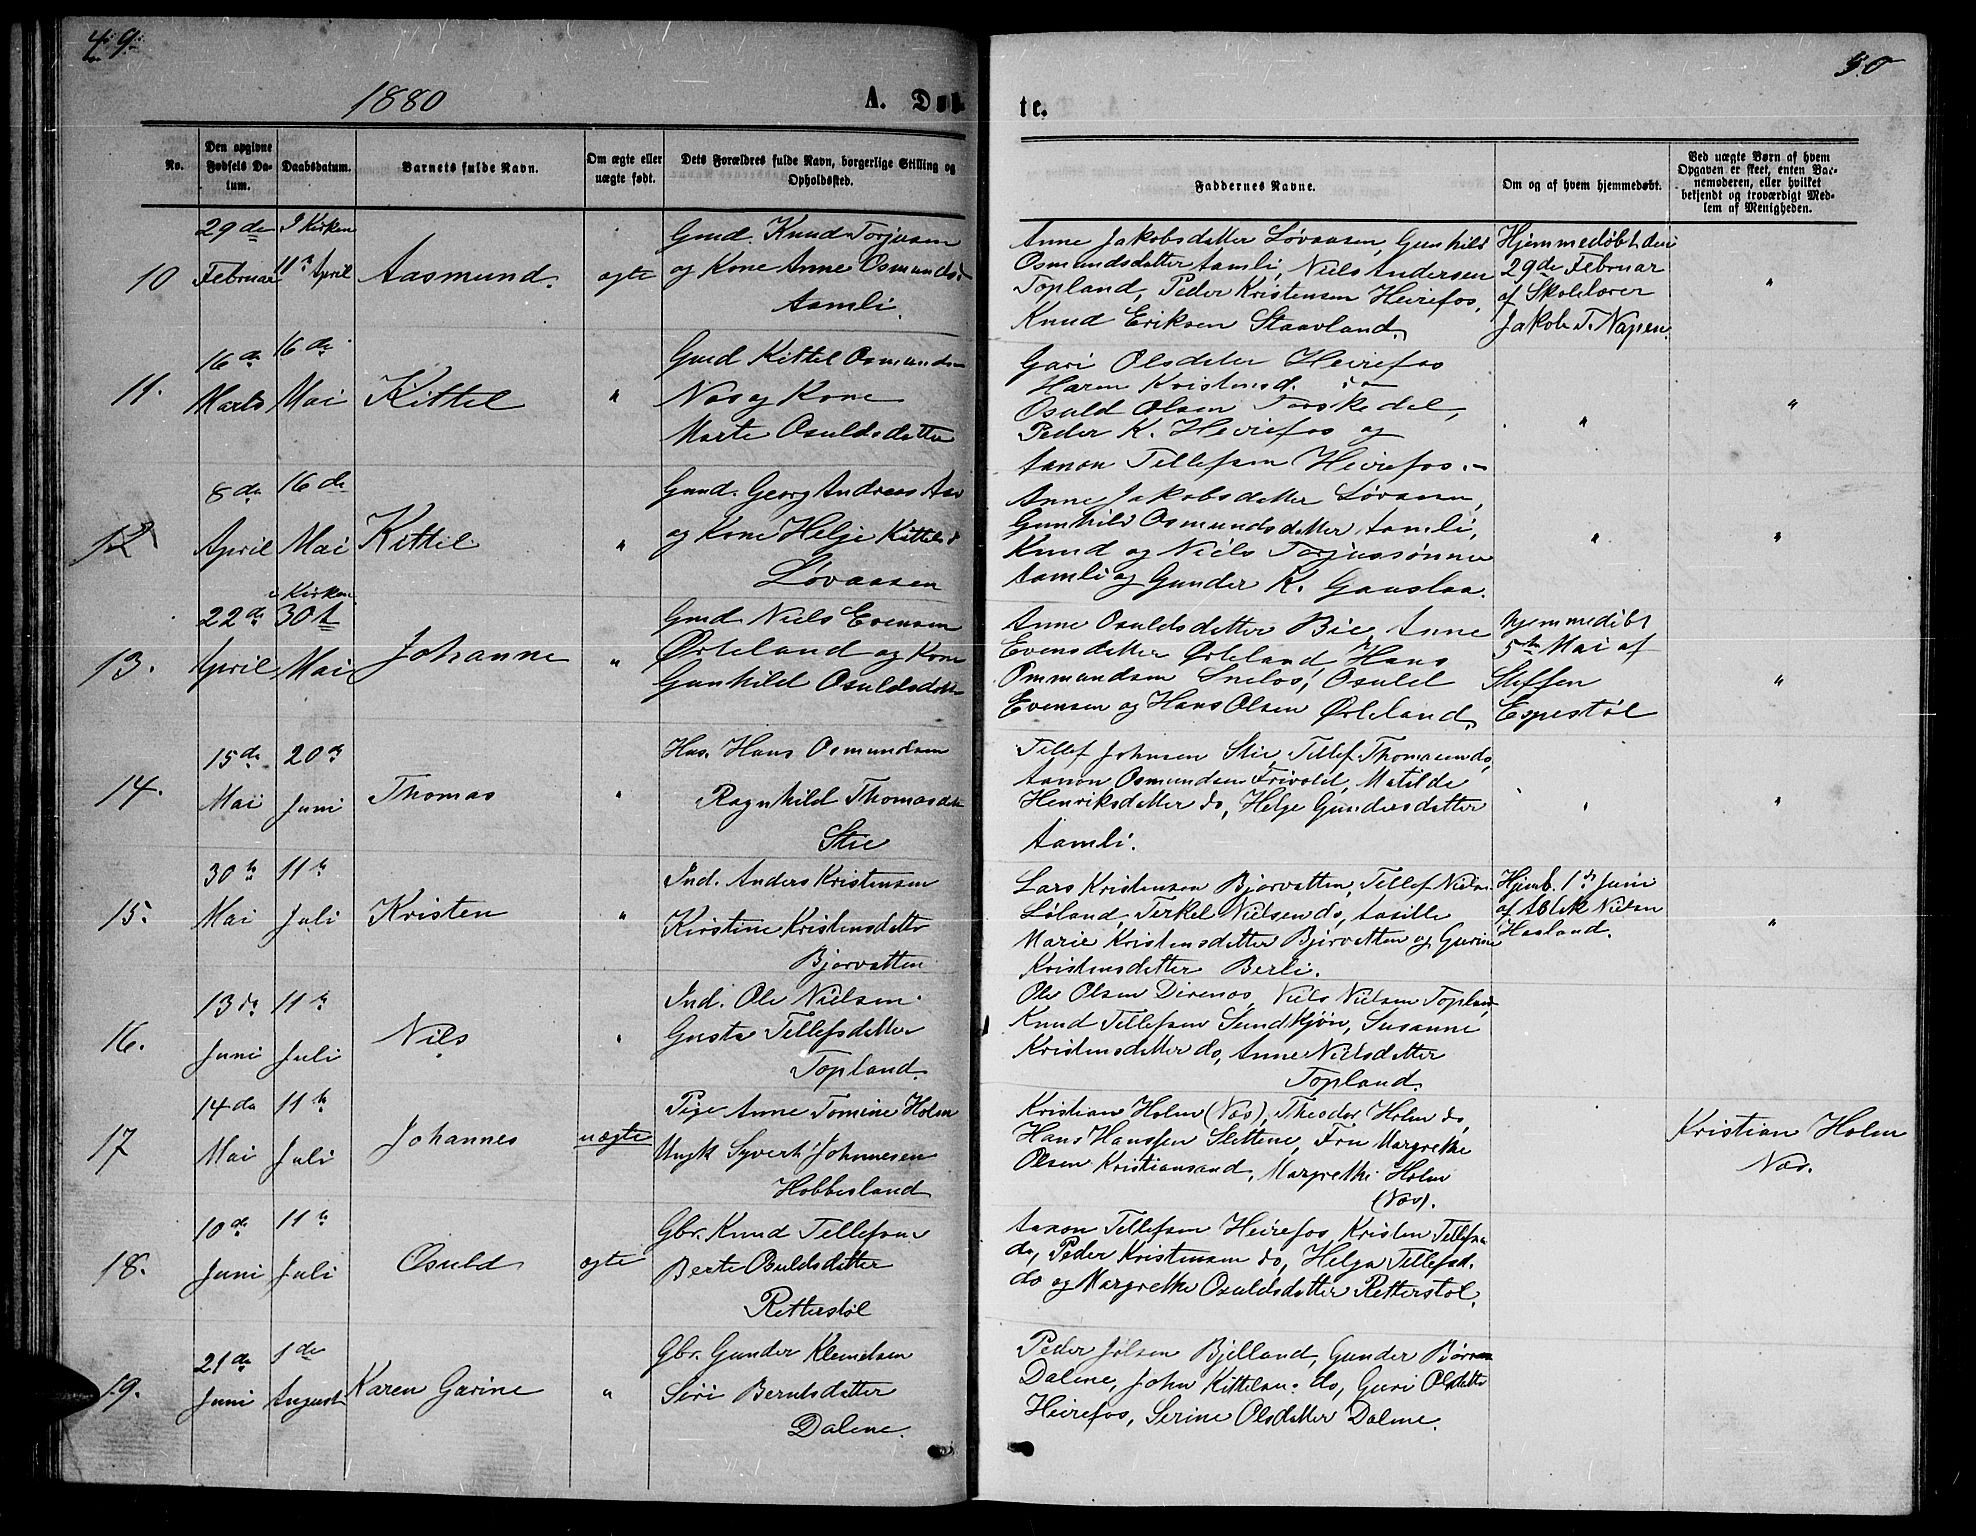 49.
1880
A. Døb
No.
Den opgivne
Fødsels Da-
tum.
Daabsdatum.
Barnets fulde Navn.
Om ægte eller
uægte født.
Dets Forældres fulde Navn, borgerlige Stilling og
Opholdssted.
10
29de
Februar
I Kirken
11te April
Aasmund.
ægte
Gmd. Knud Torjusen
og Kone Anne Osmunds-
Aamli.
11.
16de
Marts
16de
Mai
Kittel
"
Gmd Kittel Osmunds-
Næs og Kone
Marte Osuldsdatter
12
8de
April
16de
Mai
Kittil
"
Gmd. Georg Andreas Aas
og Kone Helje Kittelsd
Løvaasen
13.
22de
April
i Kirken
30te
Mai
Johanne
"
Gmd Niels Evensen
Ørteland og Kone
Gunhild Osuldsdatter
14.
15de
Mai
20de
Juni
Thomas
"
Hus. Hans Osmundsen
Ragnhild Thomasdatter
Stie
15.
30te
Mai
11te
Juli
Kristen
"
Ind. Anders Kristensen
Kirstine Kristensdatter
Bjorvatten
16.
13de
Juni
11te
Juli
Nils
"
Ind. Ole Nielsen
Gusta Tellefsdatter
Topland.
17
14de
Mai
11te
Juli
Johannes
uægte
Pige Anne Tomine Holm
Ungk Syvert Johnnesen
Hobbesland
18.
10de
Juni
11te
Juli
Osuld
ægte
Gbr. Knud Tellefsen
Berte Osuldsdatter
Retterstøl
19.
21de
Juni
1de
August
Karen Gurine
"
Gbr. Gunder Klemetsen
Siri Berntsdatter
Dalene.
50
te.
Faddernes Navne.
Om og af hvem hjemmedøbt.
Ved uægte Børn af hvem
Opgaven er skeet, enten Bar-
nemoderen, eller hvilket
bekjendt og troværdigt Med-
lem af Menigheden.
Anne Jakobsdatter Løvaasen, Gunhild
Osmundsdatter Aamli, Niels Andersen
Topland, Peder Kristensen Heirefos,
Knud Eriksen Staavland.
Hjemmedøbt den
29de Februar
af Skolelærer
Jakob T. Napen.
"
Guri Olsdatter Heirefos
Maren Kristensd. do
Osuld Olsen Torskedal,
Peder K. Heirefos og
Aanon Tellefsen Heirefos.
"
"
Anne Jakobsdatter Løvaasen,
Gunhild Osmundsdatter Aamli,
Knud og Niels Torjussønner
Aamli og Gunder K. Gauslaa.
"
"
Anne Osuldsdatter Bie, Anne
Evensdatter Ørteland, Hans
Ommundsen Sneløs, Osuld
Evensen og Hans Olsen Ørteland.
Hjemmedøbt
5te Mai af
Steffen
Espestøl
"
Tellef Johnsen Stie, Tellef Thomassen do,
Aanon Osmundsen Frivold, Matilde
Henriksdatter do, Helje Gundersdatter
Aamli.
"
"
Lars Kristensen Bjorvatten, Tellef Nielsen
Løland, Terkel Nielsen do, Aasille
Marie Kristensdatter Bjorvatten og Gurine
Kristensdatter Berli.
Hjemb. 1de Juni
af Aslak Nielsen
Hasland.
"
Ole Olsen Direnes, Niels Nielsen Topland,
Knud Tellefsen Sundkjøn, Susanne
Kristensdatter do, Anne Nielsdatter
Topland.
Kristian Holm (Næs), Theodor Holm do,
Hans Hanssen Slettene, Fru Margrethe
Olsen Kristiansand, Margrethe Holm
(Næs).
Kristian Holm
Næs.
Aanon Tellefsen Heirefos, Kristen Tellefsen
do, Peder Kristensen do, Helga Tellefsd.
do og Margrethe Osuldsdatter Retterstøl.
Peder Jolsen Bjelland, Gunder Børresen
Dalene, John Kittelsen do, Guri Olsdatter
Heirefos, Serine Olsdatter Dalene.